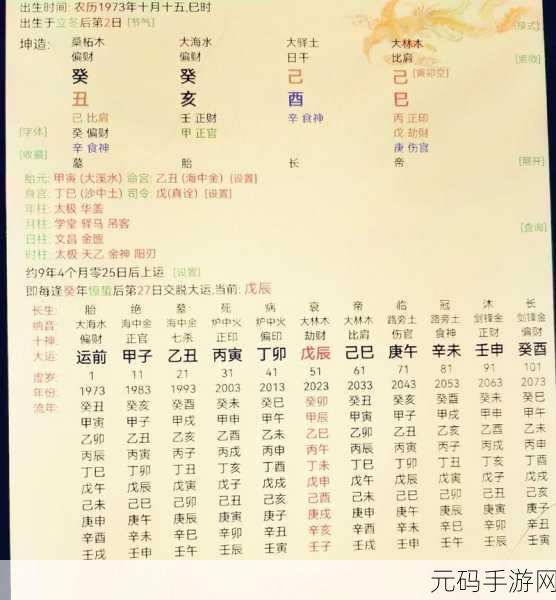 出生时间: 农历1973年十月十五,巳时
出生于立冬后第2日 [节气]
坤造: 桑柘木 大海水 大驿土 大林木
偏财 偏财 日干 比肩
癸 癸 己 己 [寅卯空]
丑 亥 酉 巳
己 比肩 壬 正财 辛 食神 丙 正印
[字体] 癸 偏财 甲 正官 戊 劫财
[收藏] 辛 食神 庚 伤官
墓 胎 长 帝 [展开]
胎元: 甲寅 (大溪水) 命宫: 乙丑 (海中金) [设置]
身宫: 丁巳 (沙中土) 司令: 戊(真诠) [设置]
年柱: 太极 华盖
月柱: 学堂 驿马 吊客
日柱: 文昌 金匮 [查询]
时柱: 太极 天乙 金神 阳刃
约9年4个月零25日后上运 [设置]
即每逢癸年惊蛰后第27日交脱大运,当前: 戊辰
长生: 胎 绝 墓 死 病 衰 帝 临 冠 沐 长
纳音: 大海水 海中金 海中金 炉中火 炉中火 大林木 大林木 路旁土 路旁土 剑锋金 剑锋金
十神: 偏财 正官 七杀 正印 偏印 劫财 比肩 伤官 食神 正财 偏财
大运: 运前 甲子 乙丑 丙寅 丁卯 戊辰 己巳 庚午 辛未 壬申 癸酉
虚岁: 1 11 21 31 41 51 61 71 81 91 101
年份: 1973 1983 1993 2003 2013 2023 2033 2043 2053 2063 2073
流年: 癸丑 癸亥 癸酉 癸未 癸巳 癸卯 癸丑 癸亥 癸酉 癸未 癸巳
甲寅 甲子 甲戌 甲申 甲午 甲辰 甲寅 甲子 甲戌 甲申 甲午
乙卯 乙丑 乙亥 乙酉 乙未 乙巳 乙卯 乙丑 乙亥 乙酉 乙未
丙辰 丙寅 丙子 丙戌 丙申 丙午 丙辰 丙寅 丙子 丙戌 丙申
丁巳 丁卯 丁丑 丁亥 丁酉 丁未 丁巳 丁卯 丁丑 丁亥 丁酉
戊午 戊辰 戊寅 戊子 戊戌 戊申 戊午 戊辰 戊寅 戊子 戊戌
己未 己巳 己卯 己丑 己亥 己酉 己未 己巳 己卯 己丑 己亥
庚申 庚午 庚辰 庚寅 庚子 庚戌 庚申 庚午 庚辰 庚寅 庚子
辛酉 辛未 辛巳 辛卯 辛丑 辛亥 辛酉 辛未 辛巳 辛卯 辛丑
壬戌 壬申 壬午 壬辰 壬寅 壬子 壬戌 壬申 壬午
元码手游网